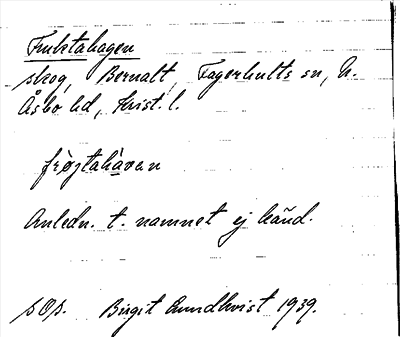 Fruktahagen
skog, Bernalt, Fagerhults sn, N.
Åsbo hd, Krist. l.
frøjtahàven
Anledn. t. namnet ej känd.
sOp. Birgit Lundkvist 1939.